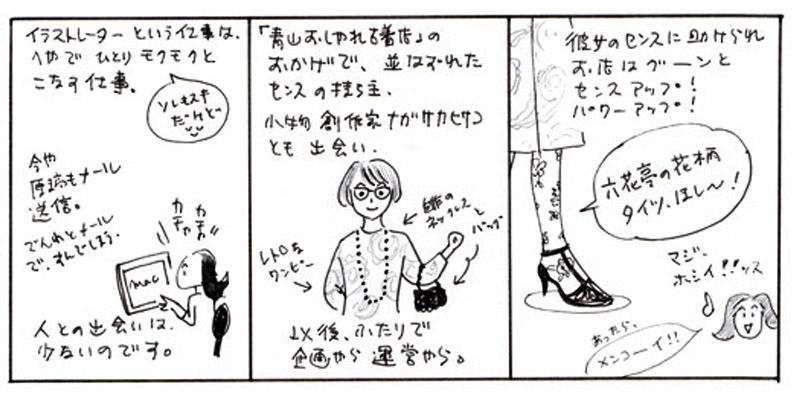 イラストレーターという仕事は、
へやでひとりモクモクと
こなす仕事。
ソレもスキ
だけど
今や
原稿もメール
送信。
でんわとメール
で、すんでしまう。
カチャ
カチャ
mac
人との出会いは、
少ないのです。
「青山おしゃれ古着店」の
おかげで、並はずれた
センスの持ち主、
小物創作家ナガサカヒサコ
とも出会い、
自作の
ネックレスと
バッグ
レトロな
ワンピー
以後、ふたりで
企画から運営から。
彼女のセンスに助けられ
お店はグーンと
センスアップ!
パワーアップ!
六花亭の花柄
タイツ、ほし〜!
マジ、
ホシイ!!ッス
あったら、
メンコーイ!!